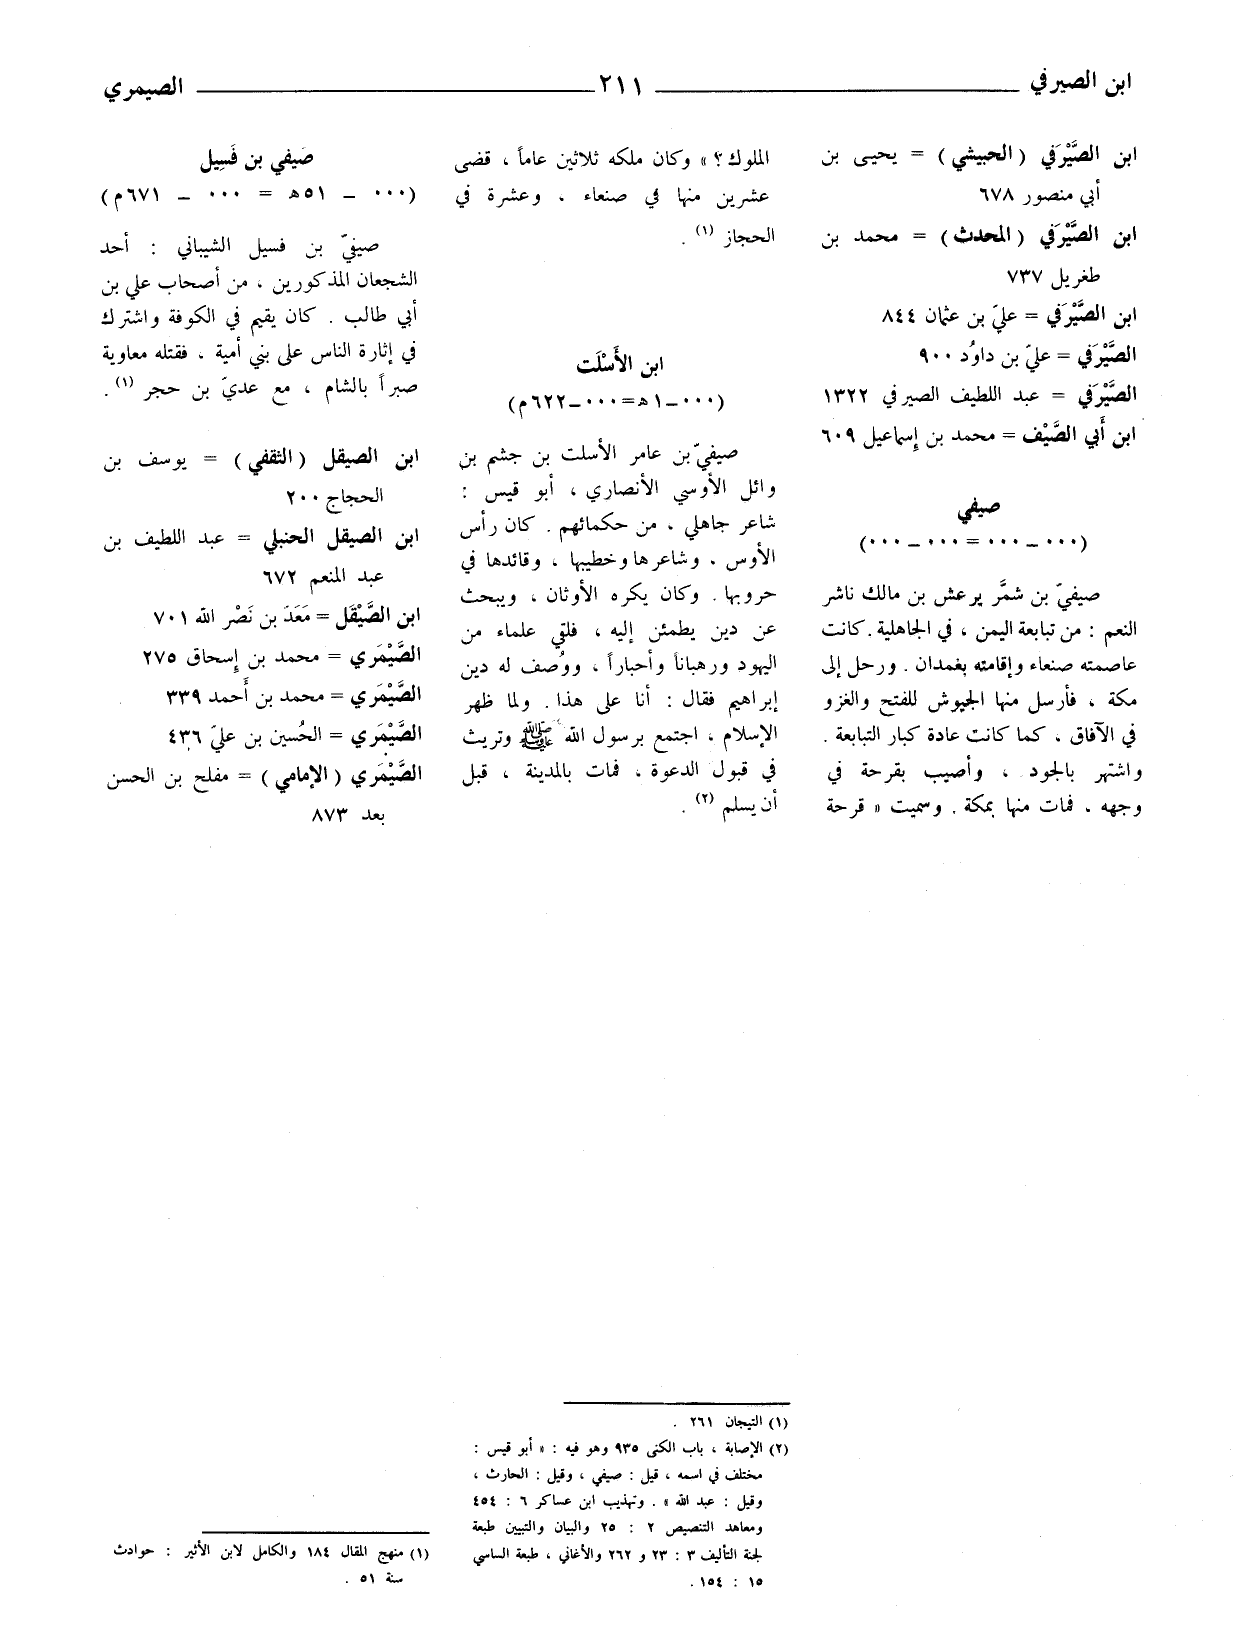 ابن الصيرفي ٢١١ الصيمري
ابن الصَّيْرَفي (الحبيشي) = يحيى بن
أبي منصور ٦٧٨
ابن الصَّيْرَفي (المحدث) = محمد بن
طغريل ٧٣٧
ابن الصَّيْرَفي = عليّ بن عثمان ٨٤٤
الصَّيْرَفي = عليّ بن داوُد ٩٠٠
الصَّيْرَفي = عبد اللطيف الصيرفي ١٣٢٢
ابن أَبي الصَّيْف = محمد بن إِسماعيل ٦٠٩
صيفي
(٠٠٠ ــ ٠٠٠ = ٠٠٠ ــ ٠٠٠)
صيفيّ بن شمَّر يرعش بن مالك ناشر
النعم : من تبابعة اليمن ، في الجاهلية . كانت
عاصمته صنعاء وإقامته بغمدان . ورحل إلى
مكة ، فأرسل منها الجيوش للفتح والغزو
في الآفاق ، كما كانت عادة كبار التبابعة .
واشتهر بالجود ، وأصيب بقرحة في
وجهه ، فمات منها بمكة . وسميت « قرحة
الملوك؟ » وكان ملكه ثلاثين عاماً ، قضى
عشرين منها في صنعاء ، وعشرة في
الحجاز (١) .
ابن الأَسْلَت
(٠٠٠ــ ١ هـ = ٠٠٠ــ ٦٢٢ م)
صيفيّ بن عامر الأسلت بن جشم بن
وائل الأوسي الأنصاري ، أبو قيس :
شاعر جاهلي ، من حكمائهم . كان رأس
الأوس ، وشاعرها وخطيبها ، وقائدها في
حروبها . وكان يكره الأوثان ، ويبحث
عن دين يطمئن إليه ، فلقي علماء من
اليهود ورهباناً وأحباراً ، ووُصف له دين
إبراهيم فقال : أنا على هذا . ولما ظهر
الإسلام ، اجتمع برسول الله ﷺ وتريث
في قبول الدعوة ، فمات بالمدينة ، قبل
أن يسلم (٢) .
صَيفي بن فَسِيل
(٠٠٠ ــ ٥١ هـ = ٠٠٠ ــ ٦٧١ م)
صيفيّ بن فسيل الشيباني : أحد
الشجعان المذكورين ، من أصحاب علي بن
أبي طالب . كان يقيم في الكوفة واشترك
في إثارة الناس على بني أمية ، فقتله معاوية
صبراً بالشام ، مع عديّ بن حجر (١) .
ابن الصيقل (الثقفي) = يوسف بن
الحجاج ٢٠٠
ابن الصيقل الحنبلي = عبد اللطيف بن
عبد المنعم ٦٧٢
ابن الصَّيْقَل = مَعَدّ بن نَصْر الله ٧٠١
الصَّيْمَري = محمد بن إِسحاق ٢٧٥
الصَّيْمَري = محمد بن أَحمد ٣٣٩
الصَّيْمَري = الحُسين بن عليّ ٤٣٦
الصَّيْمَري (الإمامي) = مفلح بن الحسن
بعد ٨٧٣
(١) التيجان ٢٦١ .
(٢) الإصابة ، باب الكنى ٩٣٥ وهو فيه : « أبو قيس :
مختلف في اسمه ، قيل : صيفي ، وقيل : الحارث ،
وقيل : عبد الله » . وتهذيب ابن عساكر ٦ : ٤٥٤
ومعاهد التنصيص ٢ : ٢٥ والبيان والتبيين طبعة
لجنة التأليف ٣ : ٢٣ و ٢٦٢ والأغاني ، طبعة الساسي
١٥ : ١٥٤ .
(١) منهج المقال ١٨٤ والكامل لابن الأثير : حوادث
سنة ٥١ .